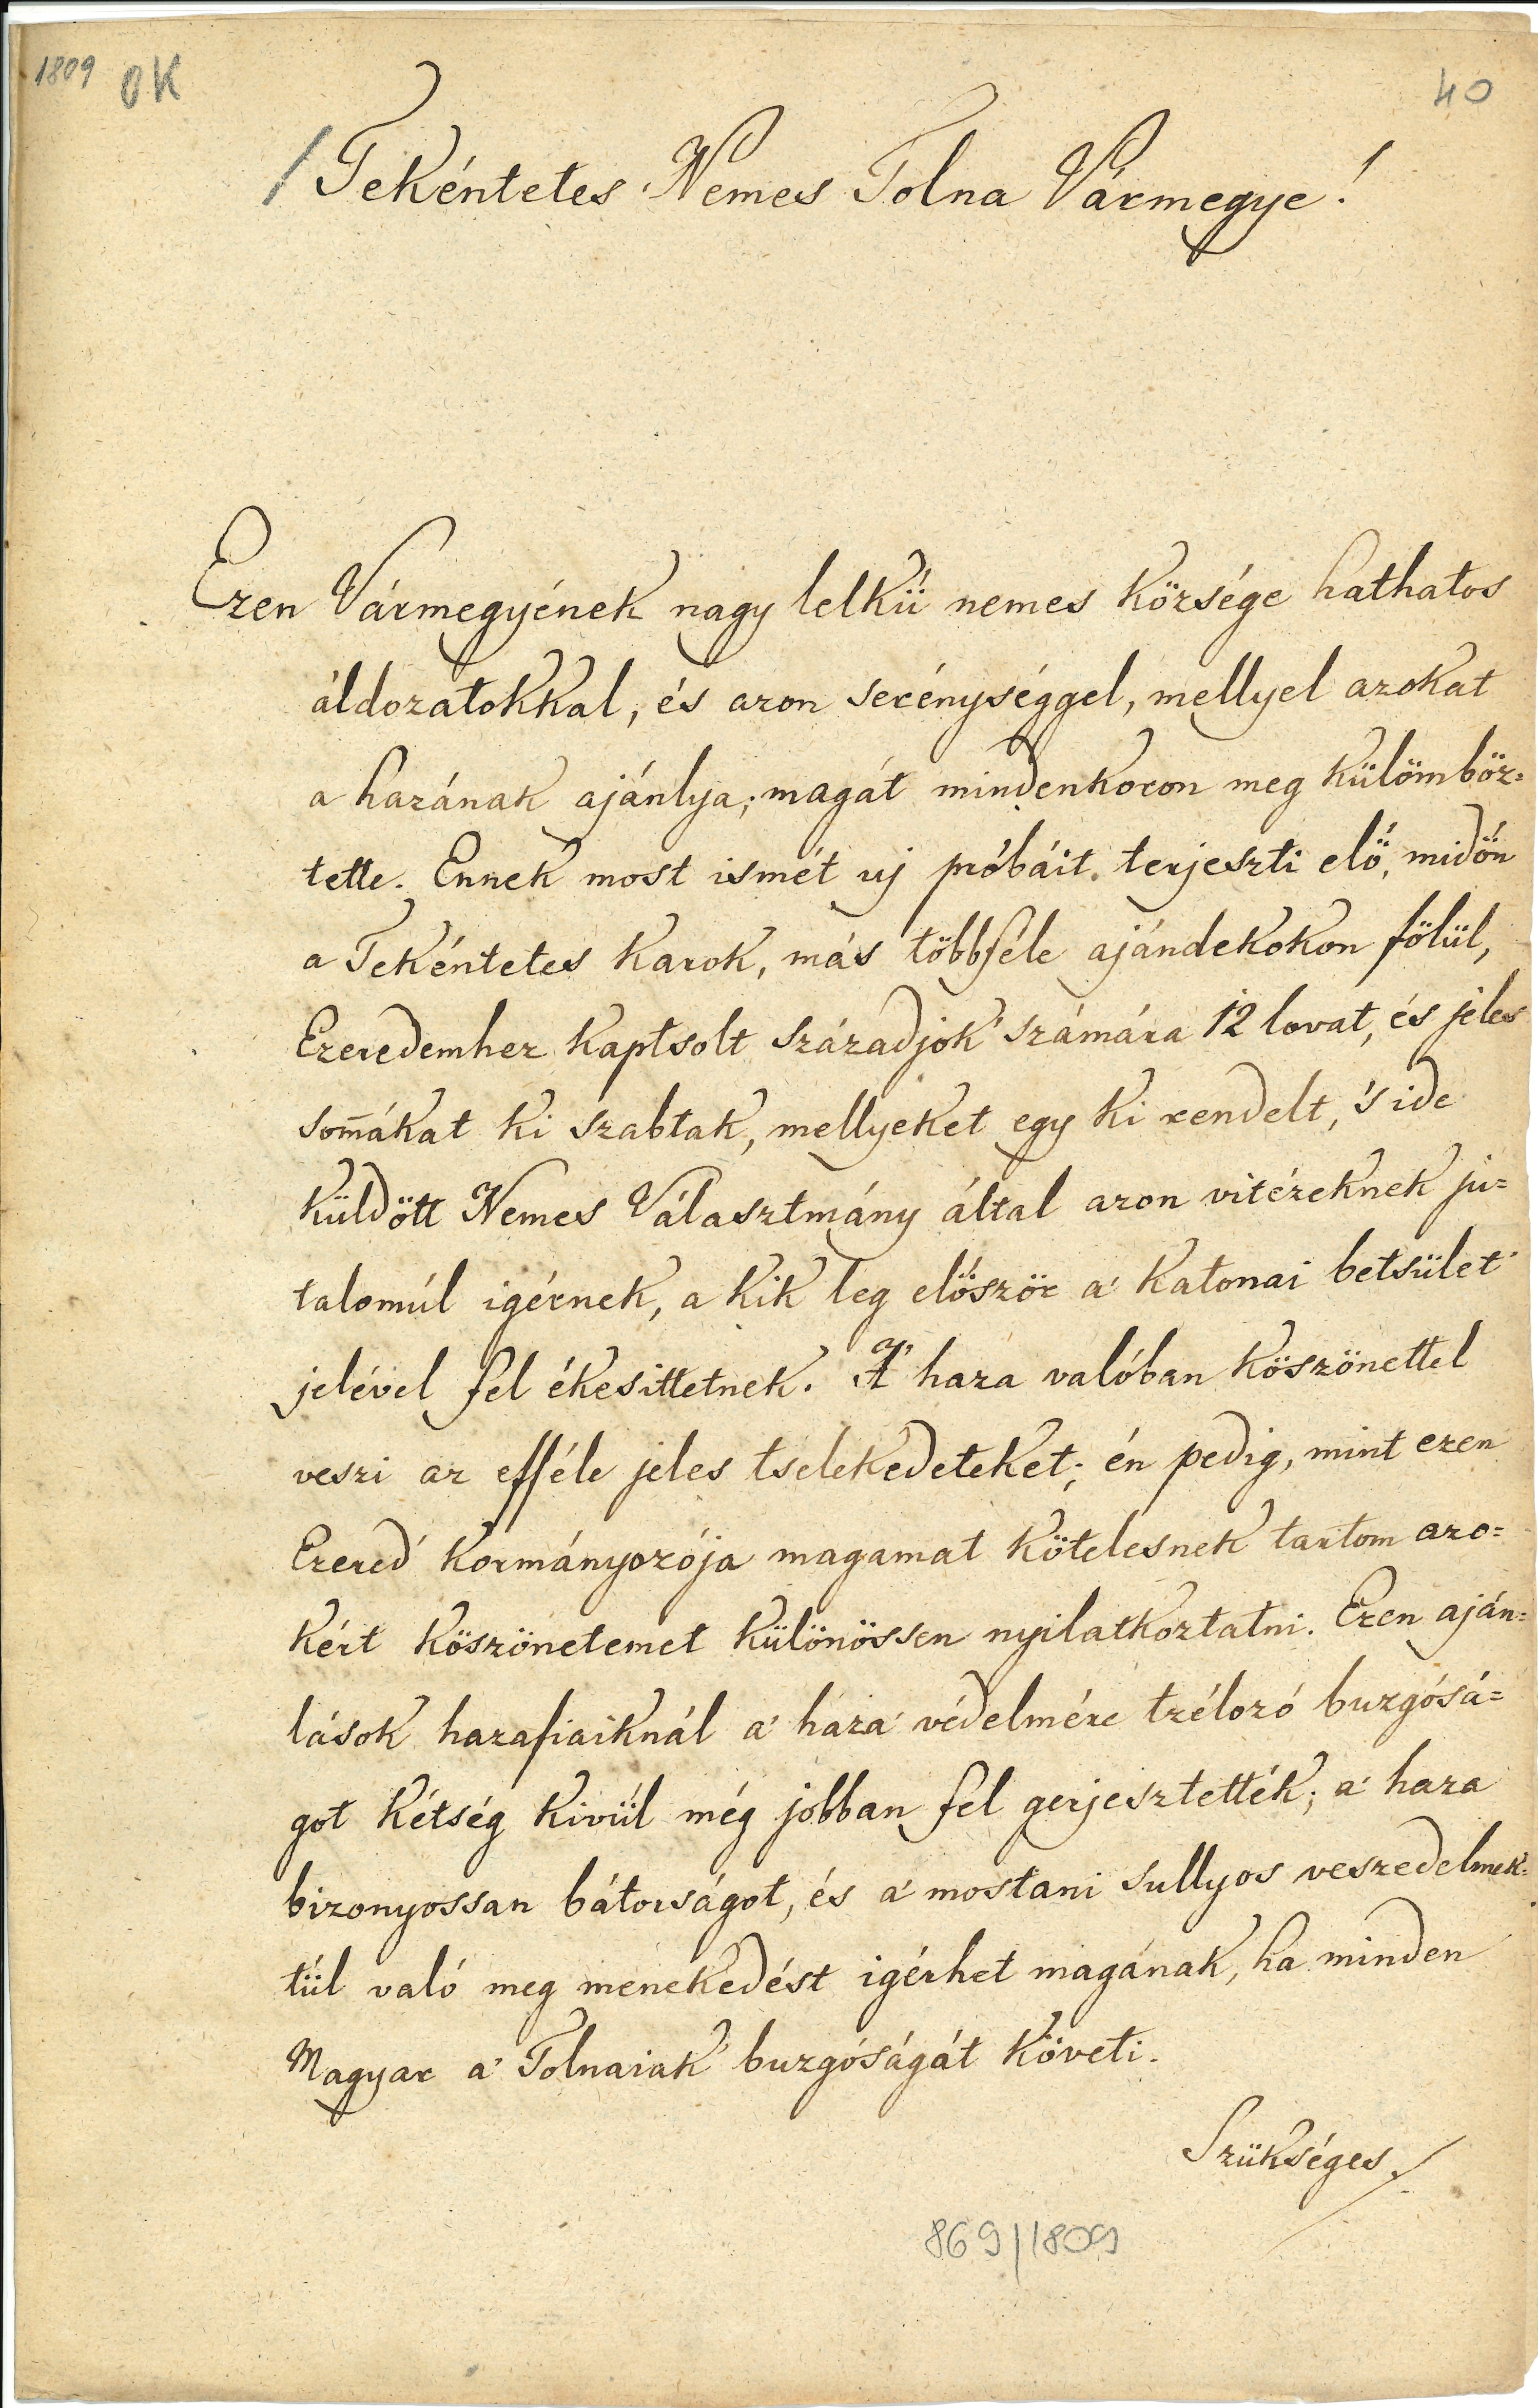 1809 OK
40
/ Tekéntetes Nemes Tolna Vármegye!
Ezen Vármegyének nagy lelkű nemes községe hathatos
áldozatokkal, és azon serénységgel, mellyel azokat
a hazának ajánlya; magát mindenkoron meg külömböz=
tette. Ennek most ismét uj próbáit terjeszti elő, midőn
a Tekéntetes Karok, más többféle ajándekokon fölül,
Ezeredemhez kaptsolt századjok' számára 12 lovat, és jeles
som̄ákat ki szabtak, mellyeket egy ki rendelt, 's ide
küldött Nemes Választmány által azon vitézeknek ju=
talomúl igérnek, a kik leg először a' katonai betsület'
jelével fel ékesittetnek. A' haza valóban köszönettel
veszi az efféle jeles tselekedeteket; én pedig, mint ezen
Ezered' kormányozója magamat kötelesnek tartom azo=
kért köszönetemet különössen nyilatkoztatni. Ezen aján=
lások hazafiaiknál a' haza' védelmére tzélozó buzgósá=
got kétség kivűl még jobban fel gerjesztették; a' haza
bizonyossan bátorságot, és a' mostani sullyos veszedelmek=
tűl való meg menekedést igérhet magának, ha minden
Magyar a' Tolnaiak' buzgóságát követi.
Szükséges
869/1809